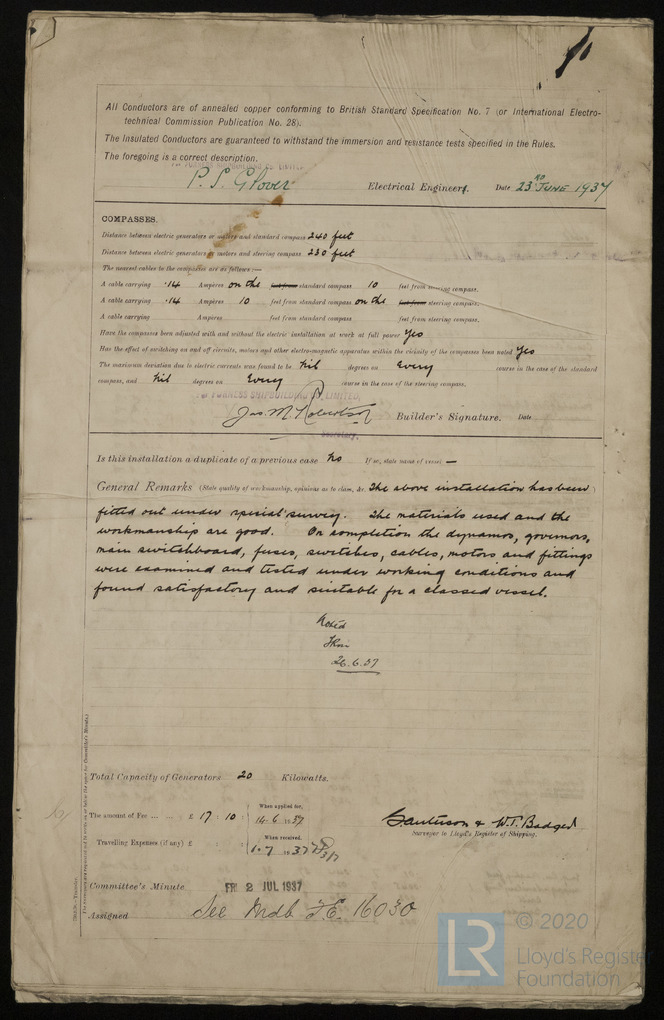 All Conductors are of annealed copper conforming to British Standard Specification No. 7 (or International Electro-
technical Commission Publication No. 28).
The Insulated Conductors are guaranteed to withstand the immersion and resistance tests specified in the Rules.
The foregoing is a correct description.
P. S. Glover Electrical Engineers. Date 23RD JUNE 1937
COMPASSES.
Distance between electric generators or motors and standard compass 240 feet
Distance between electric generators or motors and steering compass 230 feet
The nearest cables to the compasses are as follows:—
A cable carrying .14 Ampères on the feet from standard compass 10 feet from steering compass.
A cable carrying .14 Ampères 10 feet from standard compass on the feet from steering compass.
A cable carrying Ampères feet from standard compass feet from steering compass.
Have the compasses been adjusted with and without the electric installation at work at full power Yes
Has the effect of switching on and off circuits, motors and other electro-magnetic apparatus within the vicinity of the compasses been noted Yes
The maximum deviation due to electric currents was found to be Nil degrees on Every course in the case of the standard
compass, and Nil degrees on Every course in the case of the steering compass.
FURNESS SHIPBUILDING CO. LIMITED,
Jas. M. Robertson Builder's Signature. Date
Secretary.
Is this installation a duplicate of a previous case No If so, state name of vessel —
General Remarks (State quality of workmanship, opinions as to class, &c. The above installation has been )
fitted out under special survey. The materials used and the
workmanship are good. On completion the dynamos, governors,
main switchboard, fuses, switches, cables, motors and fittings
were examined and tested under working conditions and
found satisfactory and suitable for a classed vessel.
Noted
26.6.37
Total Capacity of Generators 20 Kilowatts.
The amount of Fee ... ... £ 17 : 10 : When applied for, 14.6 1937
Travelling Expenses (if any) £ : : When received, 1.7 1937
W.T. Badger
Surveyor to Lloyd's Register of Shipping.
Committee's Minute FRI 2 JUL 1937
Assigned See Mdb F.E. 16030
© 2020
LR
Lloyd's Register
Foundation